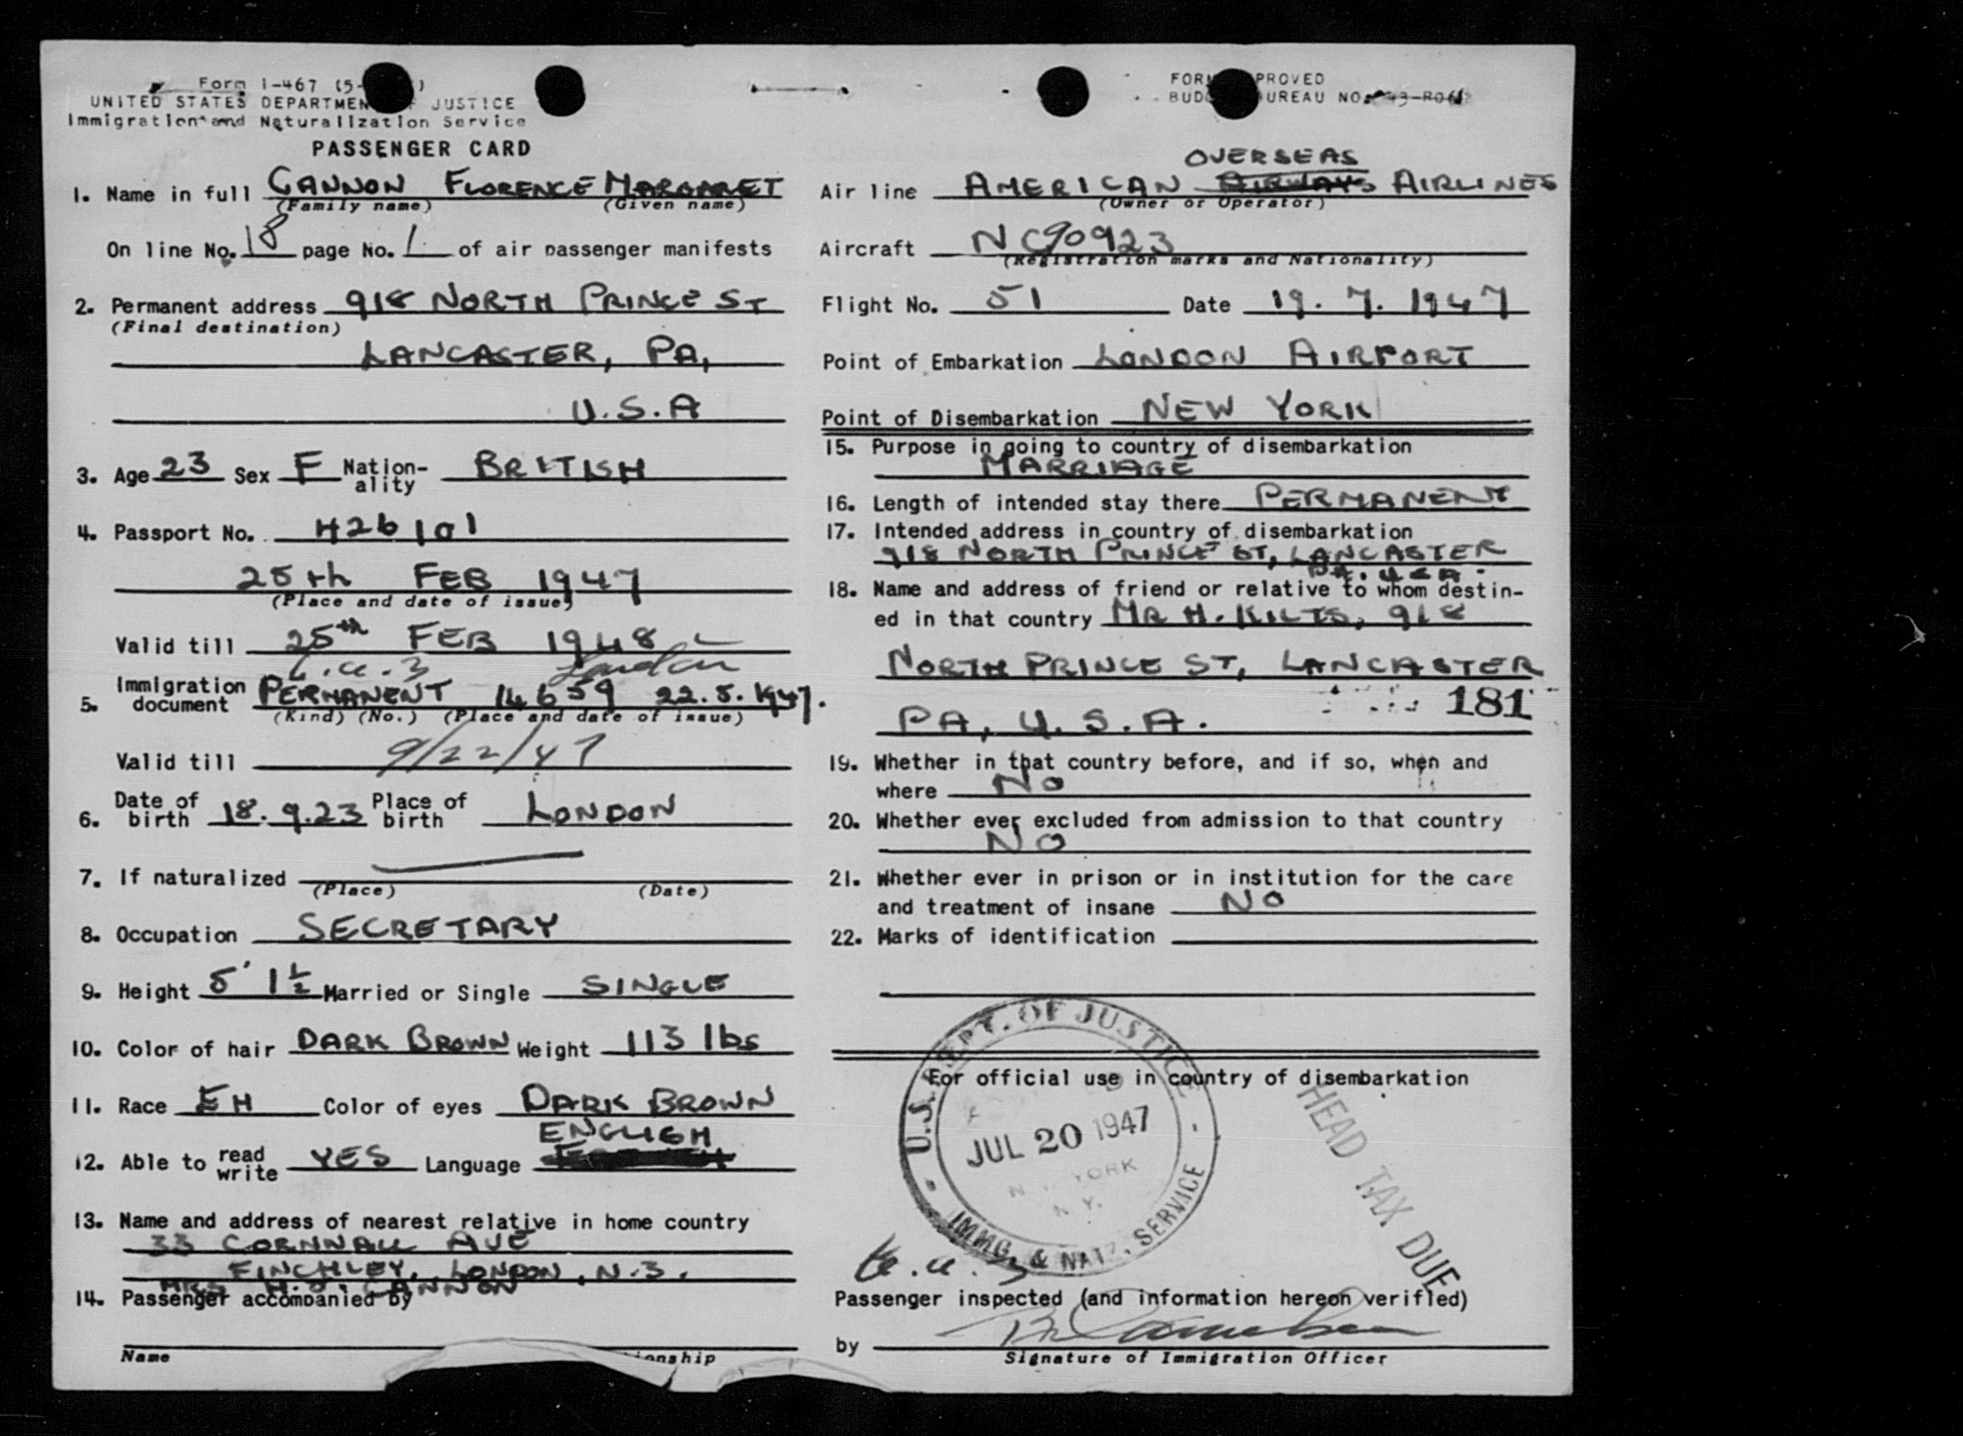 Form I-467 (5-
UNITED STATES DEPARTMEN JUSTICE
Immigration and Naturalization Service
PASSENGER CARD
1. Name in full CANNON FLORENCE MARGARET
(Family name) (Given name)
On line No. 18 page No. 1. of air passenger manifests
2. Permanent address 918 NORTH PRINCE ST
(Final destination)
LANCASTER, PA,
U.S.A
3. Age 23 Sex F Nation-ality BRITISH
4. Passport No. 426101
25th FEB 1947
(Place and date of issue)
Valid till 25th FEB 1948
London
5. Immigration document PERMANENT 14659 22.5.1947.
(Kind) (No.) (Place and date of issue)
Valid till 9/22/47
6. Date of birth 18.9.23 Place of birth LONDON
7. If naturalized
(Place) (Date)
8. Occupation SECRETARY
9. Height 5' 1½ Married or Single SINGLE
10. Color of hair DARK BROWN Weight 113 lbs
11. Race EH Color of eyes DARK BROWN
ENGLISH
12. Able to read write YES Language
13. Name and address of nearest relative in home country
33 CORNWALL AVE
FINCHLEY, LONDON, N.3.
MRS H.J. CANNON
14. Passenger accompanied by
Name ionship
FORM PROVED
BUD UREAU NO. 43-R06
OVERSEAS
Air line AMERICAN AIRWAYS AIRLINES
(Owner or Operator)
Aircraft NC90923
(Registration marks and Nationality)
Flight No. 51 Date 19.7.1947
Point of Embarkation LONDON AIRPORT
Point of Disembarkation NEW YORK
15. Purpose in going to country of disembarkation
MARRIAGE
16. Length of intended stay there PERMANENT
17. Intended address in country of disembarkation
918 NORTH PRINCE ST, LANCASTER
PA. USA.
18. Name and address of friend or relative to whom destin-
ed in that country MR H. KILTS, 918
NORTH PRINCE ST, LANCASTER
181
PA, U.S.A.
19. Whether in that country before, and if so, when and
where NO
20. Whether ever excluded from admission to that country
NO
21. Whether ever in prison or in institution for the care
and treatment of insane NO
22. Marks of identification
For official use in country of disembarkation
U.S. DEPT. OF JUSTICE
JUL 20 1947
N. YORK
N.Y.
IMMG. & NATZ. SERVICE
HEAD TAX DUE
Passenger inspected (and information hereon verified)
by
Signature of Immigration Officer